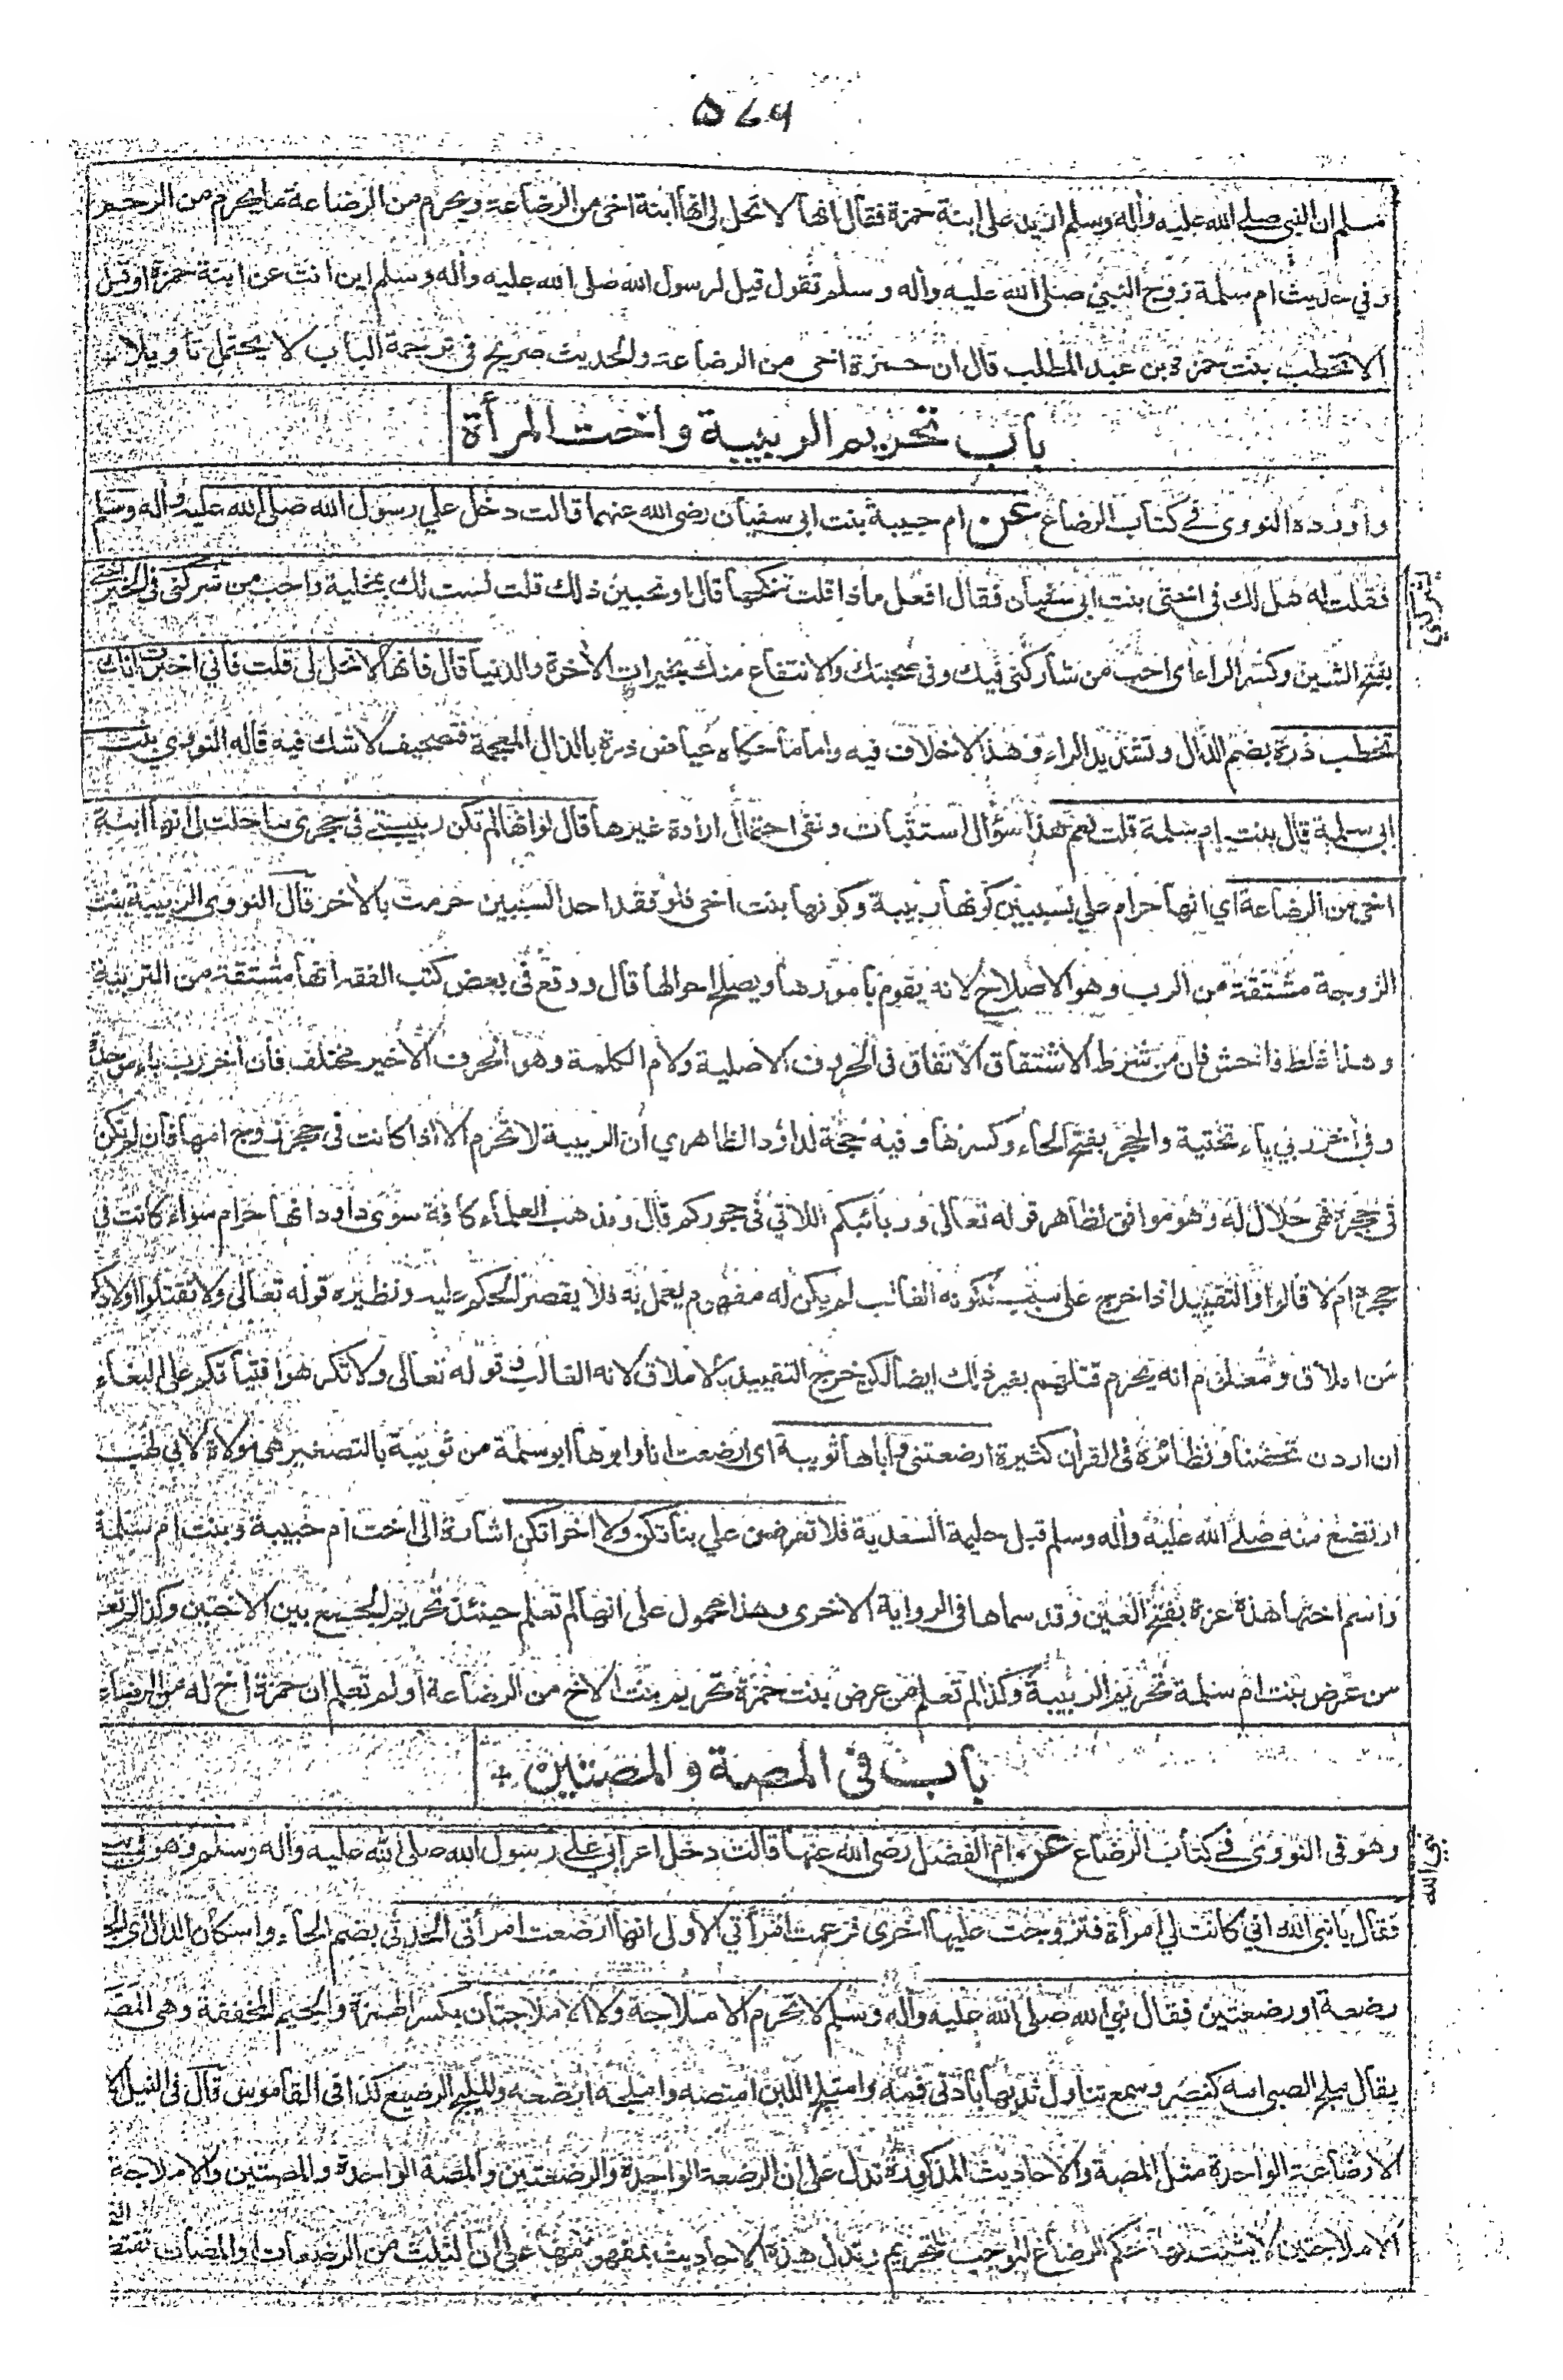 ۵۷۹
مسلم ان النبي صلى الله عليه وأله وسلم اريد على ابنة حمزة فقال انها لا تحل لي انها ابنة اخي من الرضاعة ويحرم من الرضاعة ما يحرم من الرحم
وفي حديث ام سلمة زوج النبي صلى الله عليه وأله وسلم تقول قيل لرسول الله صلى الله عليه وأله وسلم اين انت عن ابنة حمزة او قيل
الا تخطب بنت حمزة بن عبد المطلب قال ان حمزة اخي من الرضاعة والحديث صريح في ترجمة الباب لا يحتمل تأويلا
باب تحريم الربيبة واخت المرأة
وأورده النووي في كتاب الرضاع عن ام حبيبة بنت ابي سفيان رضي الله عنهما قالت دخل علي رسول الله صلى الله عليه وأله وسلم
فقلت له هل لك في اختي بنت ابي سفيان فقال افعل ماذا قلت تنكحها قال او تحبين ذلك قلت لست لك بمخلية واحب من شركني في الخير اختي
بفتح الشين وكسر الراء اي احب من شاركني فيك وفي صحبتك والانتفاع منك بخيرات الأخرة والدنيا قال فانها لا تحل لي قلت فاني اخبرت انك
تخطب درة بضم الدال وتشديد الراء وهذا لا خلاف فيه واما ما حكاه عياض ذرة بالذال المعجمة فتصحيف لا شك فيه قاله النووي بنت
ابي سلمة قال بنت ام سلمة قلت نعم هذا سؤال استثبات ونفي احتمال ارادة غيرها قال لو انها لم تكن ربيبتي في حجري ما حلت لي انها ابنة
اخي من الرضاعة اي انها حرام علي بسببين كونها ربيبة وكونها بنت اخي فلو فقد احد السببين حرمت بالأخر قال النووي الربيبة بنت
الزوجة مشتقة من الرب وهو الاصلاح لانه يقوم بأمورها ويصلح احوالها قال ووقع في بعض كتب الفقه انها مشتقة من التربية
وهذا غلط فاحش فان من شرط الاشتقاق الاتفاق في الحروف الاصلية ولام الكلمة وهو الحرف الاخير مختلف فان أخر رب باء موحدة
وفي أخر ربي ياء تحتية والحجر بفتح الحاء وكسرها وفيه حجة لداؤد الظاهري ان الربيبة لا تحرم الا اذا كانت في حجر زوج امها فان لم تكن
في حجره فهي حلال له وهو موافق لظاهر قوله تعالى وربائبكم اللاتي في حجوركم قال ومذهب العلماء كافة سوى داود انها حرام سواء كانت في
حجره ام لا قالوا والتقييد اذا خرج على سبب لكونه الغالب لم يكن له مفهوم يعمل به فلا يقصر الحكم عليه ونظيره قوله تعالى ولا تقتلوا اولادكم
من املاق ومعلوم انه يحرم قتلهم بغير ذلك ايضا لكن خرج التقييد بالاملاق لانه الغالب وقوله تعالى ولا تكرهوا فتياتكم على البغاء
ان اردن تحصنا ونظائره في القرأن كثيرة ارضعتني واباها ثويبة اي ارضعت انا وابوها ابو سلمة من ثويبة بالتصغير هي مولاة لابي لهب
ارتضع منه صلى الله عليه وأله وسلم قبل حليمة السعدية فلا تعرضن علي بناتكن ولا اخواتكن اشارة الى اخت ام حبيبة وبنت ام سلمة
واسم اختها هذة عزة بفتح العين وقد سماها في الرواية الاخرى وهذا محمول على انها لم تعلم حينئذ تحريم الجمع بين الاختين وكذا لم تعلم
من عرض بنت ام سلمة تحريم الربيبة وكذا لم تعلم من عرض بنت حمزة تحريم بنت الاخ من الرضاعة او لم تعلم ان حمزة اخ له من الرضاع
باب في المصة والمصتين
وهو في النووي في كتاب الرضاع عن ام الفضل رضي الله عنها قالت دخل اعرابي على رسول الله صلى الله عليه وأله وسلم وهو في بيتي
فقال يا نبي الله اني كانت لي امرأة فتزوجت عليها اخرى فزعمت امرأتي الأولى انها ارضعت امرأتي الحدثى بضم الحاء واسكان الدال اي
رضعة او رضعتين فقال نبي الله صلى الله عليه وأله وسلم لا تحرم الاملاجة ولا الاملاجتان بكسر الهمزة والجيم المخففة وهي المصة
يقال ملج الصبي امه كنصر وسمع تناول ثديها بأدنى فمه وامتلج اللبن امتصه واملجه ارضعه والمليج الرضيع كذا في القاموس قال في النيل
الارضاعة الواحدة مثل المصة والاحاديث المذكورة تدل على ان الرضعة الواحدة والرضعتين والمصة الواحدة والمصتين والاملاجة
الاملاجتين لا يثبت بها حكم الرضاع الموجب للتحريم وتدل هذه الاحاديث بمفهومها على ان الثلث من الرضعات او المصات تقتضي